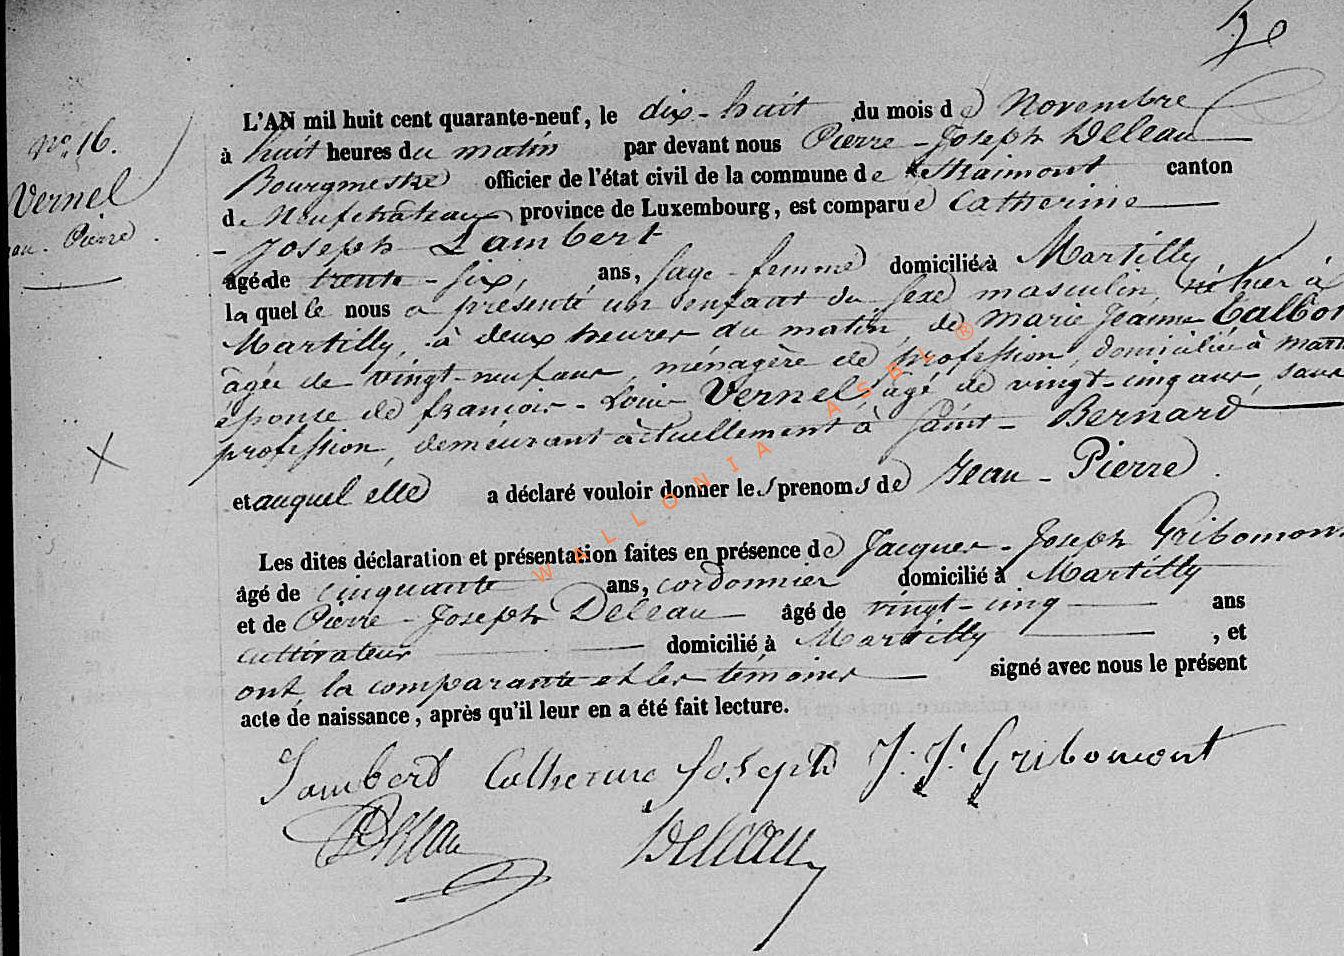 L'AN mil huit cent quarante-neuf, le dix-huit du mois de Novembre
No. 16.
à huit heures du matin par devant nous Pierre-Joseph Deleau
Vernel
Bourgmestre officier de l'état civil de la commune de Straimont canton
de Neufchâteau, province de Luxembourg, est comparue Catherine
Pierre.
Joseph Lambert
âgée de trente-six, ans, sage-femme domiciliée à Martilly
laquelle nous a présenté un enfant du sexe masculin, né hier à
Martilly, à deux heures du matin, de Marie Jeanne
âgée de vingt-neuf ans, ménagère de profession, domiciliée à
épouse de françois-Louis Vernel, âgé de vingt-cinq ans, sans
profession, demeurant actuellement à Saint-Bernard
et auquel elle a déclaré vouloir donner les prenoms de Jean-Pierre.
Les dites déclaration et présentation faites en présence de Jacques-Joseph Gribomont
âgé de cinquante ans, cordonnier domicilié à Martilly
et de Pierre-Joseph Deleau âgé de vingt-cinq ans
cultivateur domicilié à Martilly, et
ont la comparante et les témoins signé avec nous le présent
acte de naissance, après qu'il leur en a été fait lecture.
Lambert Catherine Joseph J. J. Gribomont
Deleau Deleau
WALLONIA ASBL ®